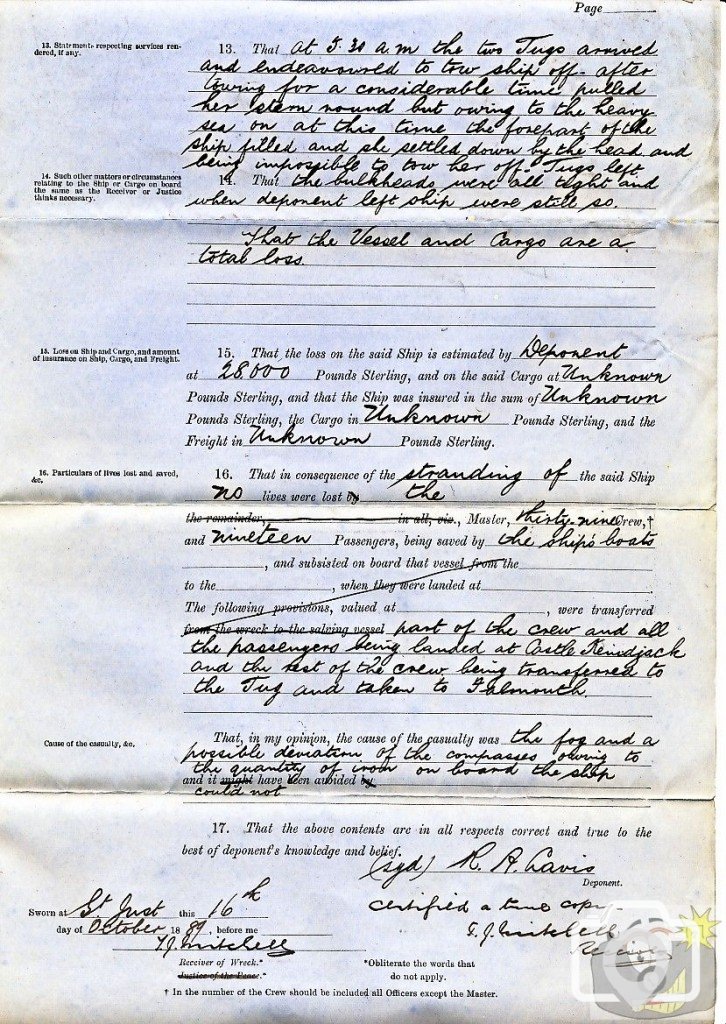 Page
13. Statements respecting services rendered, if any.
13. That at 5.30 a.m the two Tugs arrived
and endeavoured to tow ship off. after
towing for a considerable time pulled
her stern round but owing to the heavy
sea on at this time the forepart of the
ship filled and she settled down by the head and
being impossible to tow her off. Tugs left.
14. Such other matters or circumstances
relating to the Ship or Cargo on board
the same as the Receiver or Justice
thinks necessary.
14. That the bulkheads were all tight and
when deponent left ship were still so.
That the Vessel and Cargo are a
total loss.
15. Loss on Ship and Cargo, and amount
of insurance on Ship, Cargo, and Freight.
15. That the loss on the said Ship is estimated by Deponent
at 28000 Pounds Sterling, and on the said Cargo at Unknown
Pounds Sterling, and that the Ship was insured in the sum of Unknown
Pounds Sterling, the Cargo in Unknown Pounds Sterling, and the
Freight in Unknown Pounds Sterling.
16. Particulars of lives lost and saved,
&c.
16. That in consequence of the stranding of the said Ship
no lives were lost by the
the remainder, in all, viz., Master, thirty nine Crew,†
and nineteen Passengers, being saved by the ship's boats
, and subsisted on board that vessel from the
to the , when they were landed at
The following provisions, valued at , were transferred
from the wreck to the salving vessel part of the crew and all
the passengers being landed at Castle Kenidjack
and the rest of the crew being transferred to
the Tug and taken to Falmouth.
Cause of the casualty, &c.
That, in my opinion, the cause of the casualty was the fog and a
possible deviation of the compasses owing to
the quantity of iron on board the ship
and it might have been avoided by
could not
17. That the above contents are in all respects correct and true to the
best of deponent's knowledge and belief.
(sgd) R. A. Cavis
Deponent.
Sworn at St Just this 16th
day of October 1889, before me
T.J. Mitchell
Receiver of Wreck.*
Justice of the Peace.*
certified a true copy
T. J. Mitchell
Receiver
*Obliterate the words that
do not apply.
† In the number of the Crew should be included all Officers except the Master.